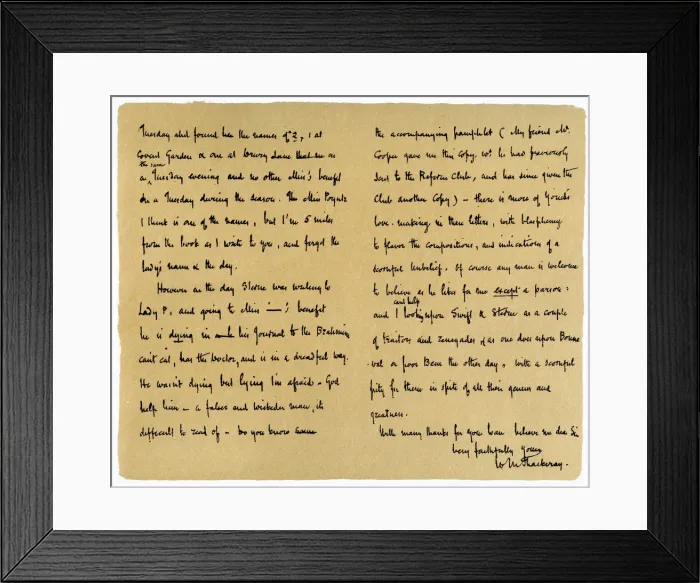 Tuesday and found her the names of 2, 1 at
Covent Garden or one at Drury Lane that me on
the same
a Tuesday evening and no other Miss's benefit
on a Tuesday during the season. The Miss Poyntz
I think is one of the names, but I'm 5 miles
from the book as I write to you, and forget the
lady's name & the day.
However on the day Sterne was writing to
Lady P. and going to Miss —'s benefit
he is dying in his Journal to the Brahmine
can't eat, has the Doctor, and is in a dreadful way.
He wasn't dying but lying I'm afraid – God
help him – a falser and wickeder man, it's
difficult to read of – Do you know
the accompanying pamphlet (My friend Mr.
Cooper gave me this copy wh. he had previously
sent to the Reform Club, and has since given the
Club another Copy) – there is more of Yorick's
love-making in these letters, with blasphemy
to flavor the compositions, and indications of a
scornful unbelief. Of course any man is welcome
to believe as he likes for me except a parson:
cant help
and I looking upon Swift & Sterne as a couple
of traitors and renegades (as one does upon Bonne
-val or poor Bem the other day, with a scornful
pity for them in spite of all their genius and
greatness.
With many thanks for your loan believe me dear Sir
Very faithfully Yours
W M Thackeray.